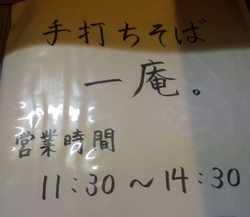 手打ちそば
一庵。
営業時間
11:30～14:30